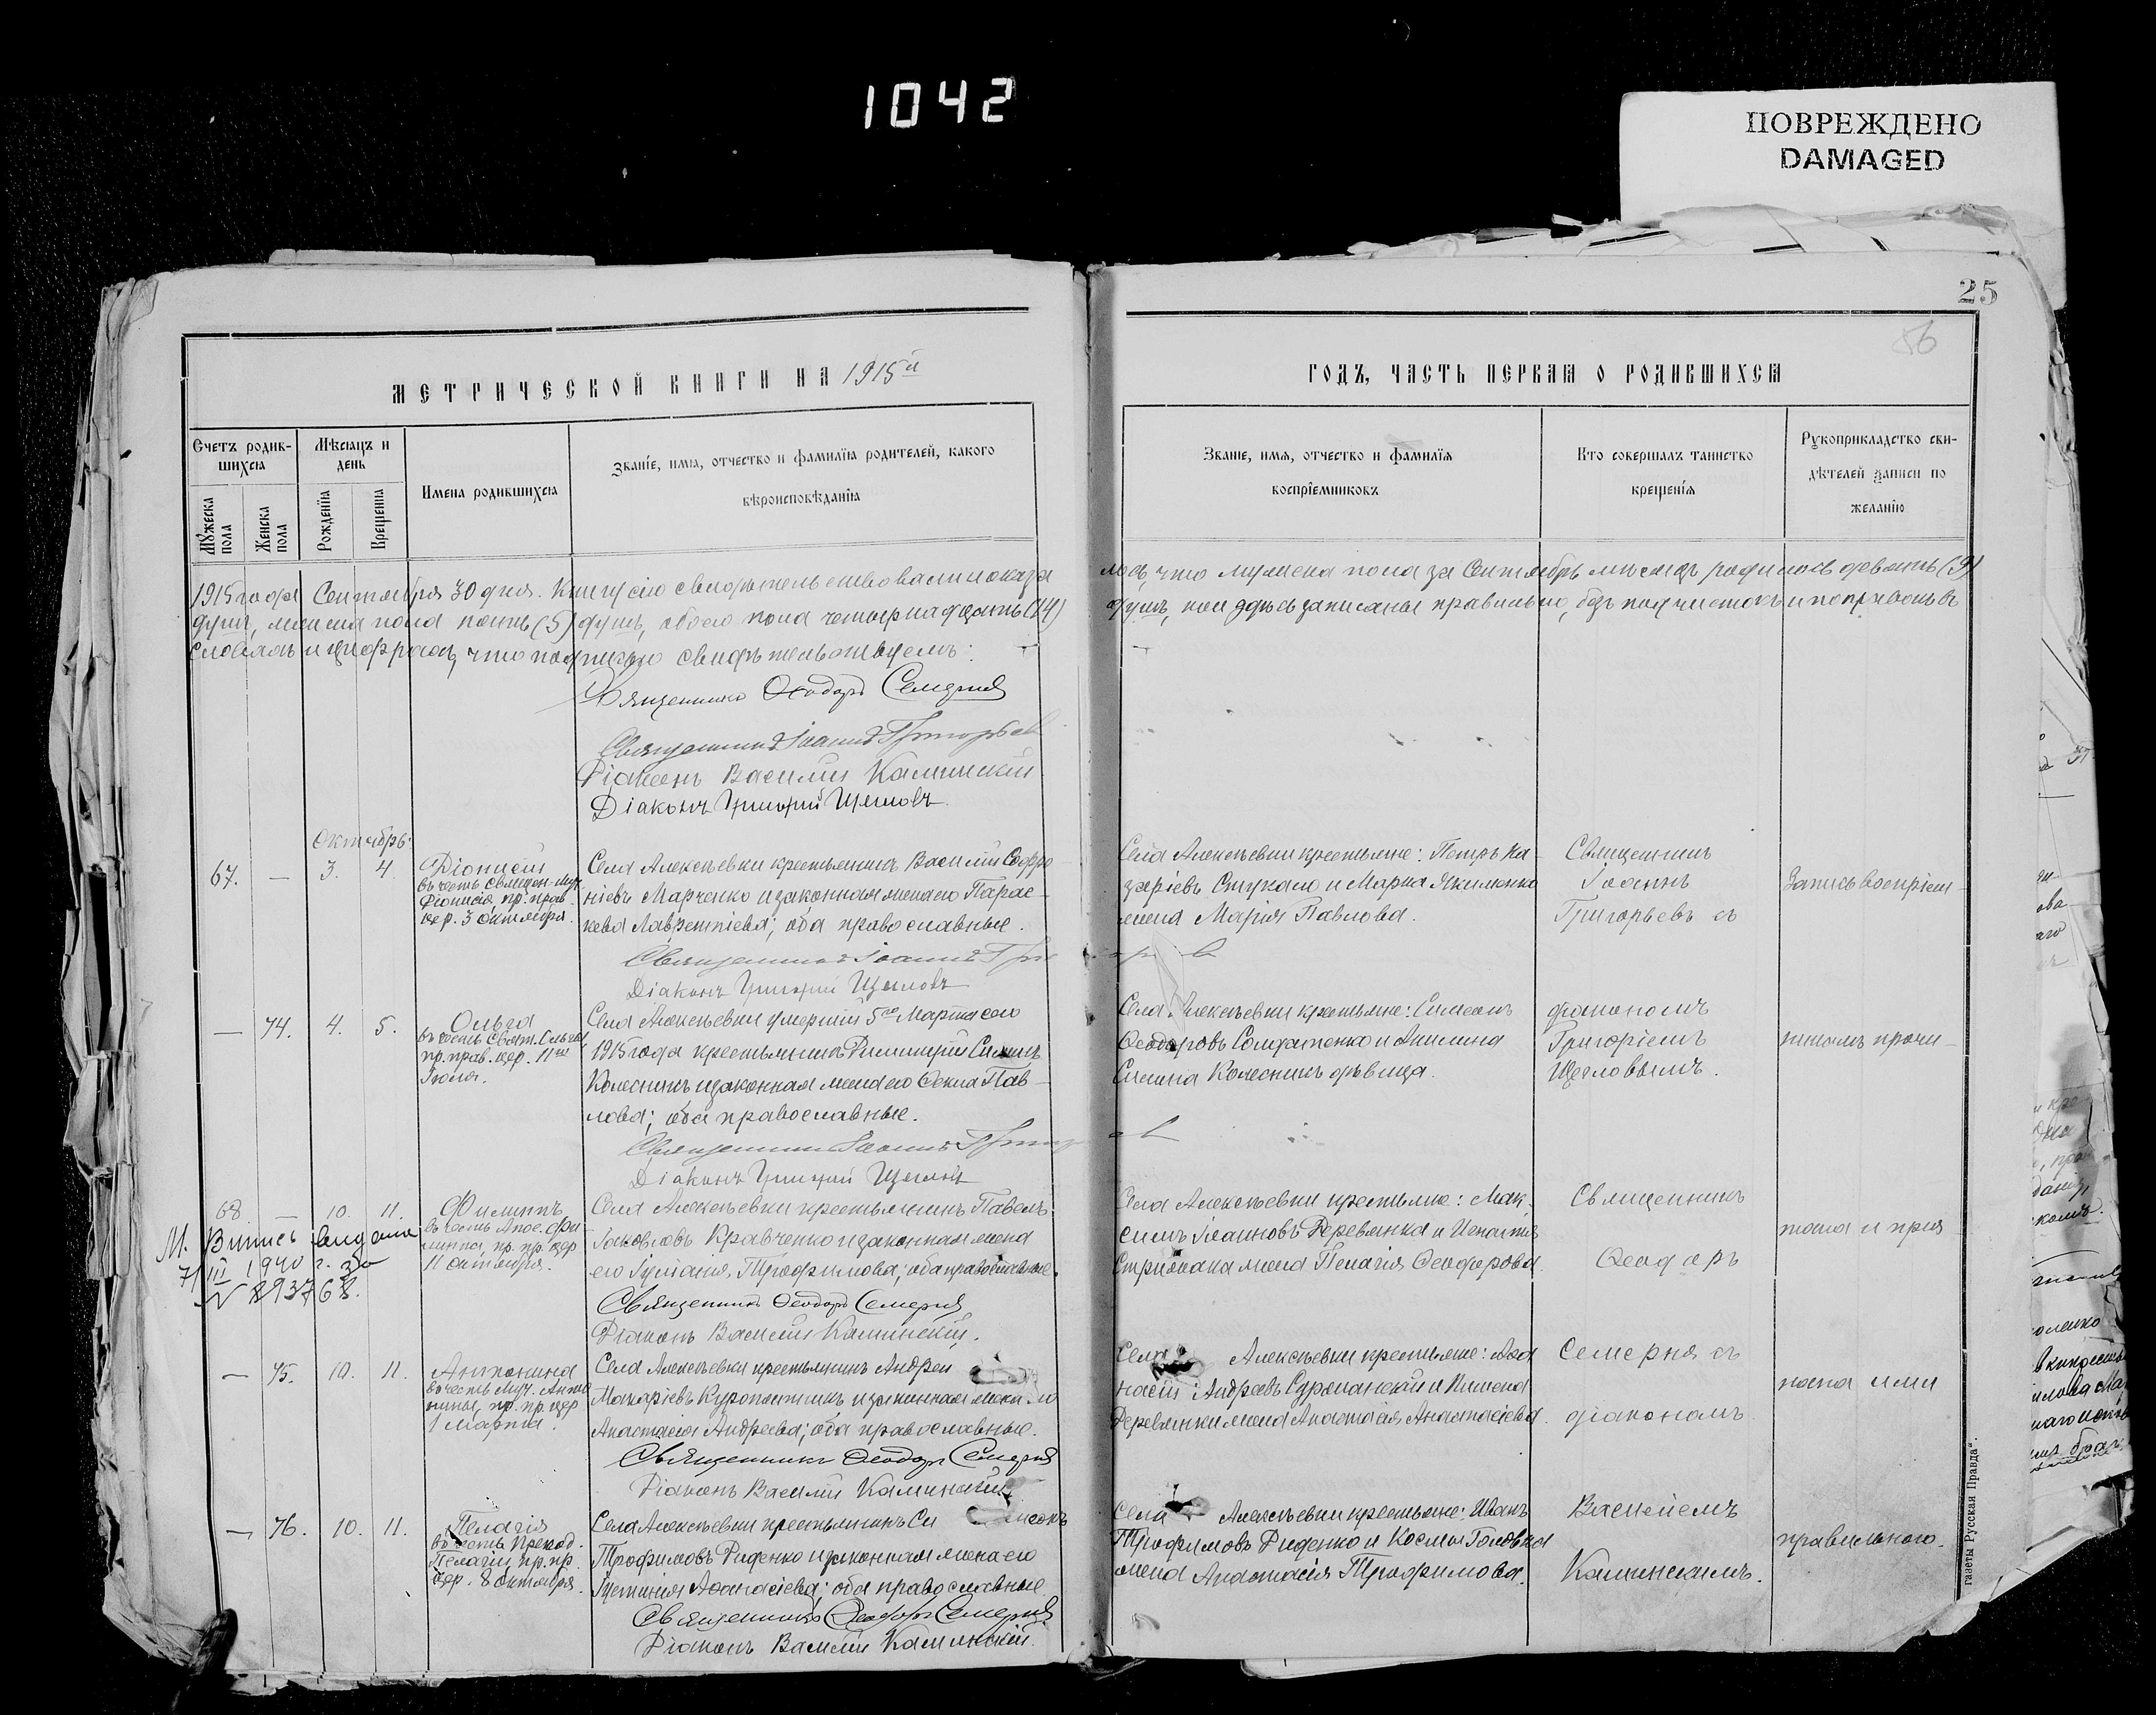 1042
ПОВРЕЖДЕНО
DAMAGED
25
56
МЕТРИЧЕСКОЙ КНИГИ НА 1915й
ГОДЪ, ЧАСТЬ ПЕРВАЯ О РОДИВШИХСЯ
Счетъ родив-
шихся
Мѣсяцъ и
день
Мужеска пола
Женска пола
Рожденія
Крещенія
Имена родившихся
Званіе, имя, отчество и фамилія родителей, какого
вѣроисповѣданія
Званіе, имя, отчество и фамилія
воспріемниковъ
Кто совершалъ таинство
крещенія
Рукоприкладство сви-
дѣтелей записи по
желанію
1915 года Сентября 30 дня. Книгу сію свидѣтельствовали и оказа
лось, что мужеска пола за Сентябрь мѣсяцъ родилось девять (9)
душъ, женска пола пять (5) душъ, обоего пола четырнадцать (14)
душъ, кои здѣсь записаны правильно, безъ подчистокъ и поправокъ въ
словахъ и цифрахъ, что подписью свидѣтельствуемъ:
Священникъ Ѳеодоръ Семерня
Священникъ Іоаннъ Григорьевъ
Діаконъ Василій Калинскій
Діаконъ Григорій Щегловъ
Октябрь:
67. — 3. 4.
Діонисій
въ честь священ.-муч.
Діонисія, пр. прав.
цер. 3 октября.
Села Алексѣевки крестьянинъ Василій Софро-
ніевъ Марченко и законная жена его Парас-
кева Лаврентіева; оба православные.
Священникъ Іоаннъ Григорьевъ
Діаконъ Григорій Щегловъ
Села Алексѣевки крестьяне: Петръ На-
заріевъ Стукало и Марка Якименко
жена Марія Павлова.
Священникъ
Іоаннъ
Григорьевъ съ
Запись воспріем-
— 74. 4. 5.
Ольга
въ честь Свят. Ольги,
пр. прав. цер. 11го
Іюля.
Села Алексѣевки умершій 5го Марта сего
1915 года крестьянинъ Симинъ
Колесникъ и законная жена его Ѳекла Пав-
лова; оба православные.
Священникъ Іоаннъ Григорьевъ
Діаконъ Григорій Щегловъ
Села Алексѣевки крестьяне: Симеонъ
Ѳеодоровъ Солдатенко и Акилина
Симина Колесникъ дѣвица.
діакономъ
Григоріемъ
Щегловымъ.
никамъ прочи-
68 — 10. 11.
Филиппъ
въ честь Апос. Фи-
липпа, пр. пр. цер.
11 октября.
М. Випись видана
7/III 1940 г. за
№ 893768.
Села Алексѣевки крестьянинъ Павелъ
Іаковлевъ Кравченко и законная жена
его Іустинія Трофимова; оба православные.
Священникъ Ѳеодоръ Семерня
Діаконъ Василій Калинскій.
Села Алексѣевки крестьяне: Мак-
симъ Іоанновъ Деревянка и Игнатія
жена Пелагія Ѳеодорова.
Священникъ
Ѳеодоръ
тана и приз-
— 75. 10. 11.
Антонина
въ честь муч. Анто-
нины, пр. пр. цер.
1 марта.
Села Алексѣевки крестьянинъ Андрей
Макаріевъ Куропятникъ и законная жена его
Анастасія Андреева; оба православные.
Священникъ Ѳеодоръ Семерня
Діаконъ Василій Калинскій
Села Алексѣевки крестьяне: Аѳа-
насій Андреевъ и
Деревянки жена Анастасія Анастасіева.
Семерня съ
діакономъ
нана ими
— 76. 10. 11.
Пелагія
въ честь Препод.
Пелагіи, пр. пр.
цер. 8 октября.
Села Алексѣевки крестьянинъ Симеонъ
Трофимовъ Руденко и законная жена его
Іустинія Аѳанасіева; оба православные
Священникъ Ѳеодоръ Семерня
Діаконъ Василій Калинскій.
Села Алексѣевки крестьяне: Иванъ
Трофимовъ Руденко и Космы Головка
жена Анастасія Трофимова.
Василіемъ
Калинскимъ.
правильною.
газеты Русская Правда".